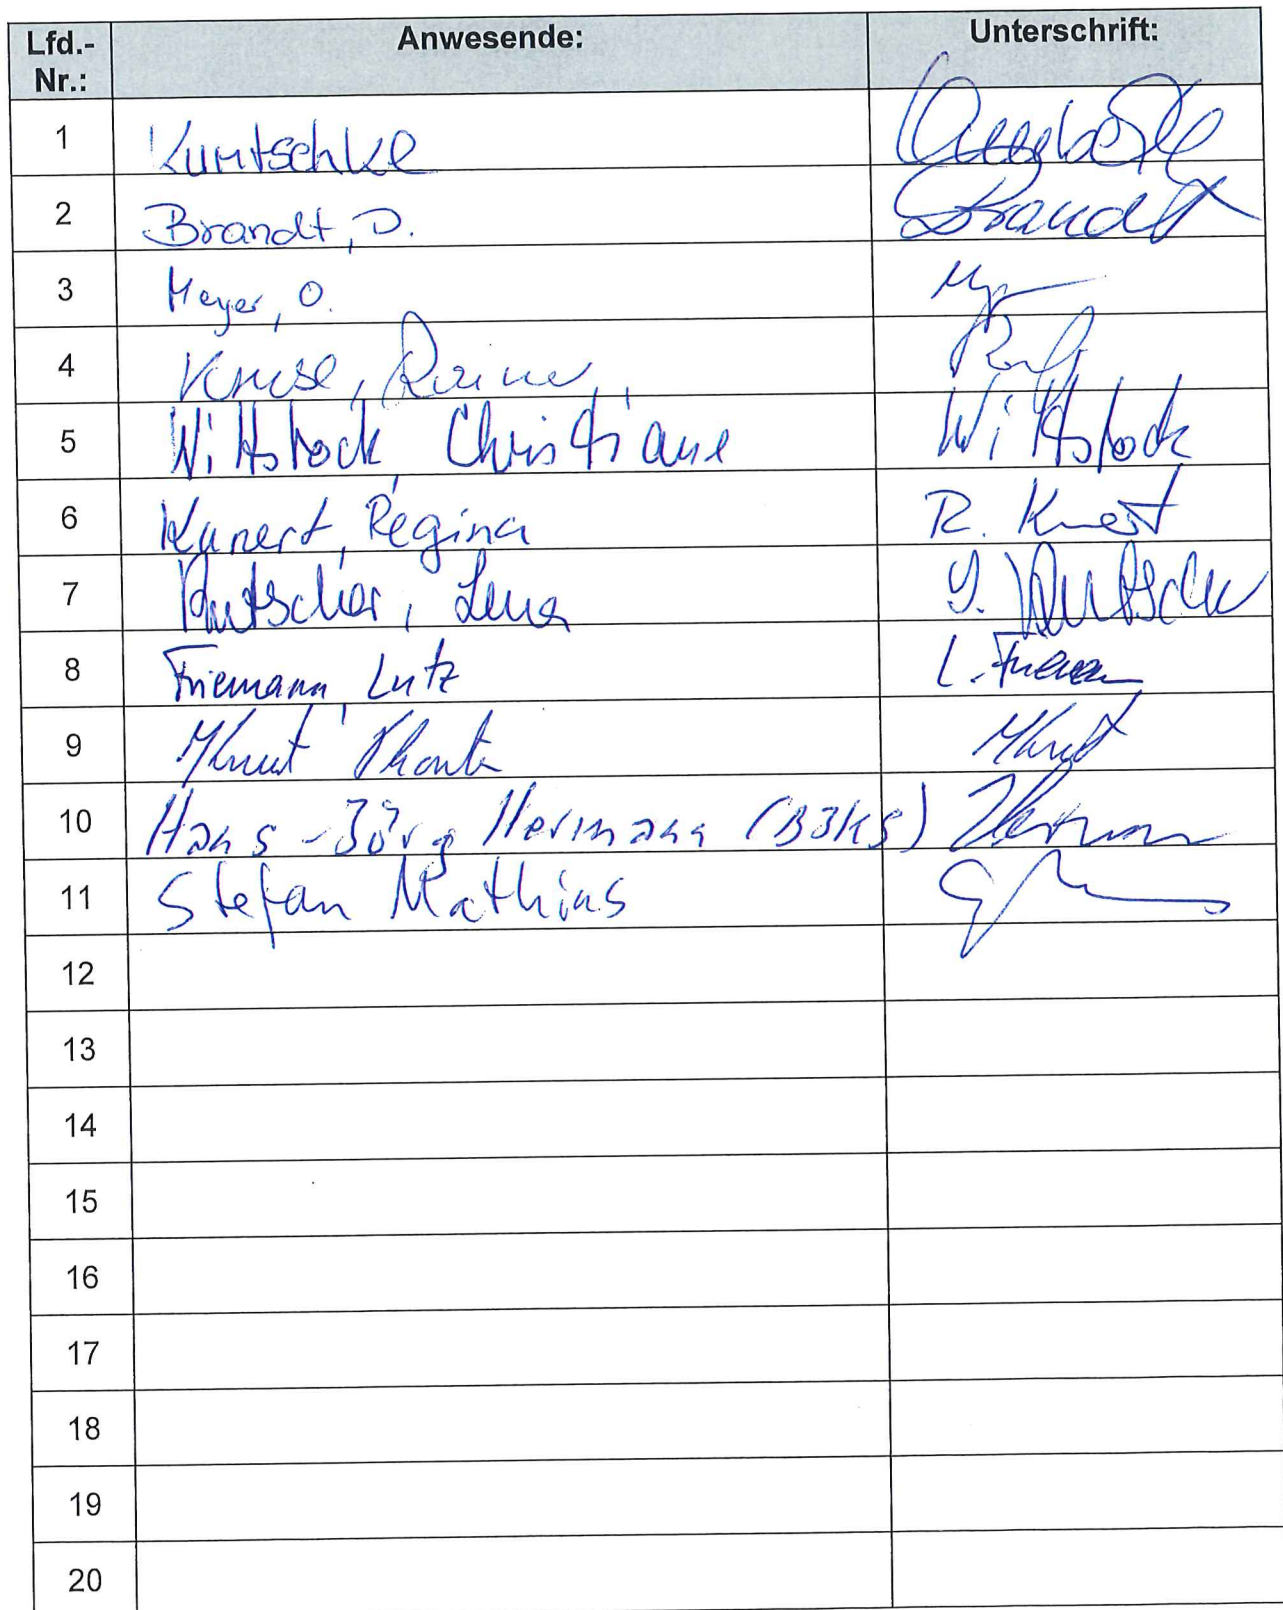 Lfd.-Nr.: Anwesende: Unterschrift:
1 Kuntschke
2 Brandt, D. Brandt
3 Meyer, O.
4 Kruse, Rainer
5 Wittstock, Christiane Wittstock
6 Kunert, Regina R. Kunert
7 Lena
8 Friemann, Lutz L. Friemann
9
10 Hans-Jörg Hermann Hermann
11 Stefan Mathias
12
13
14
15
16
17
18
19
20